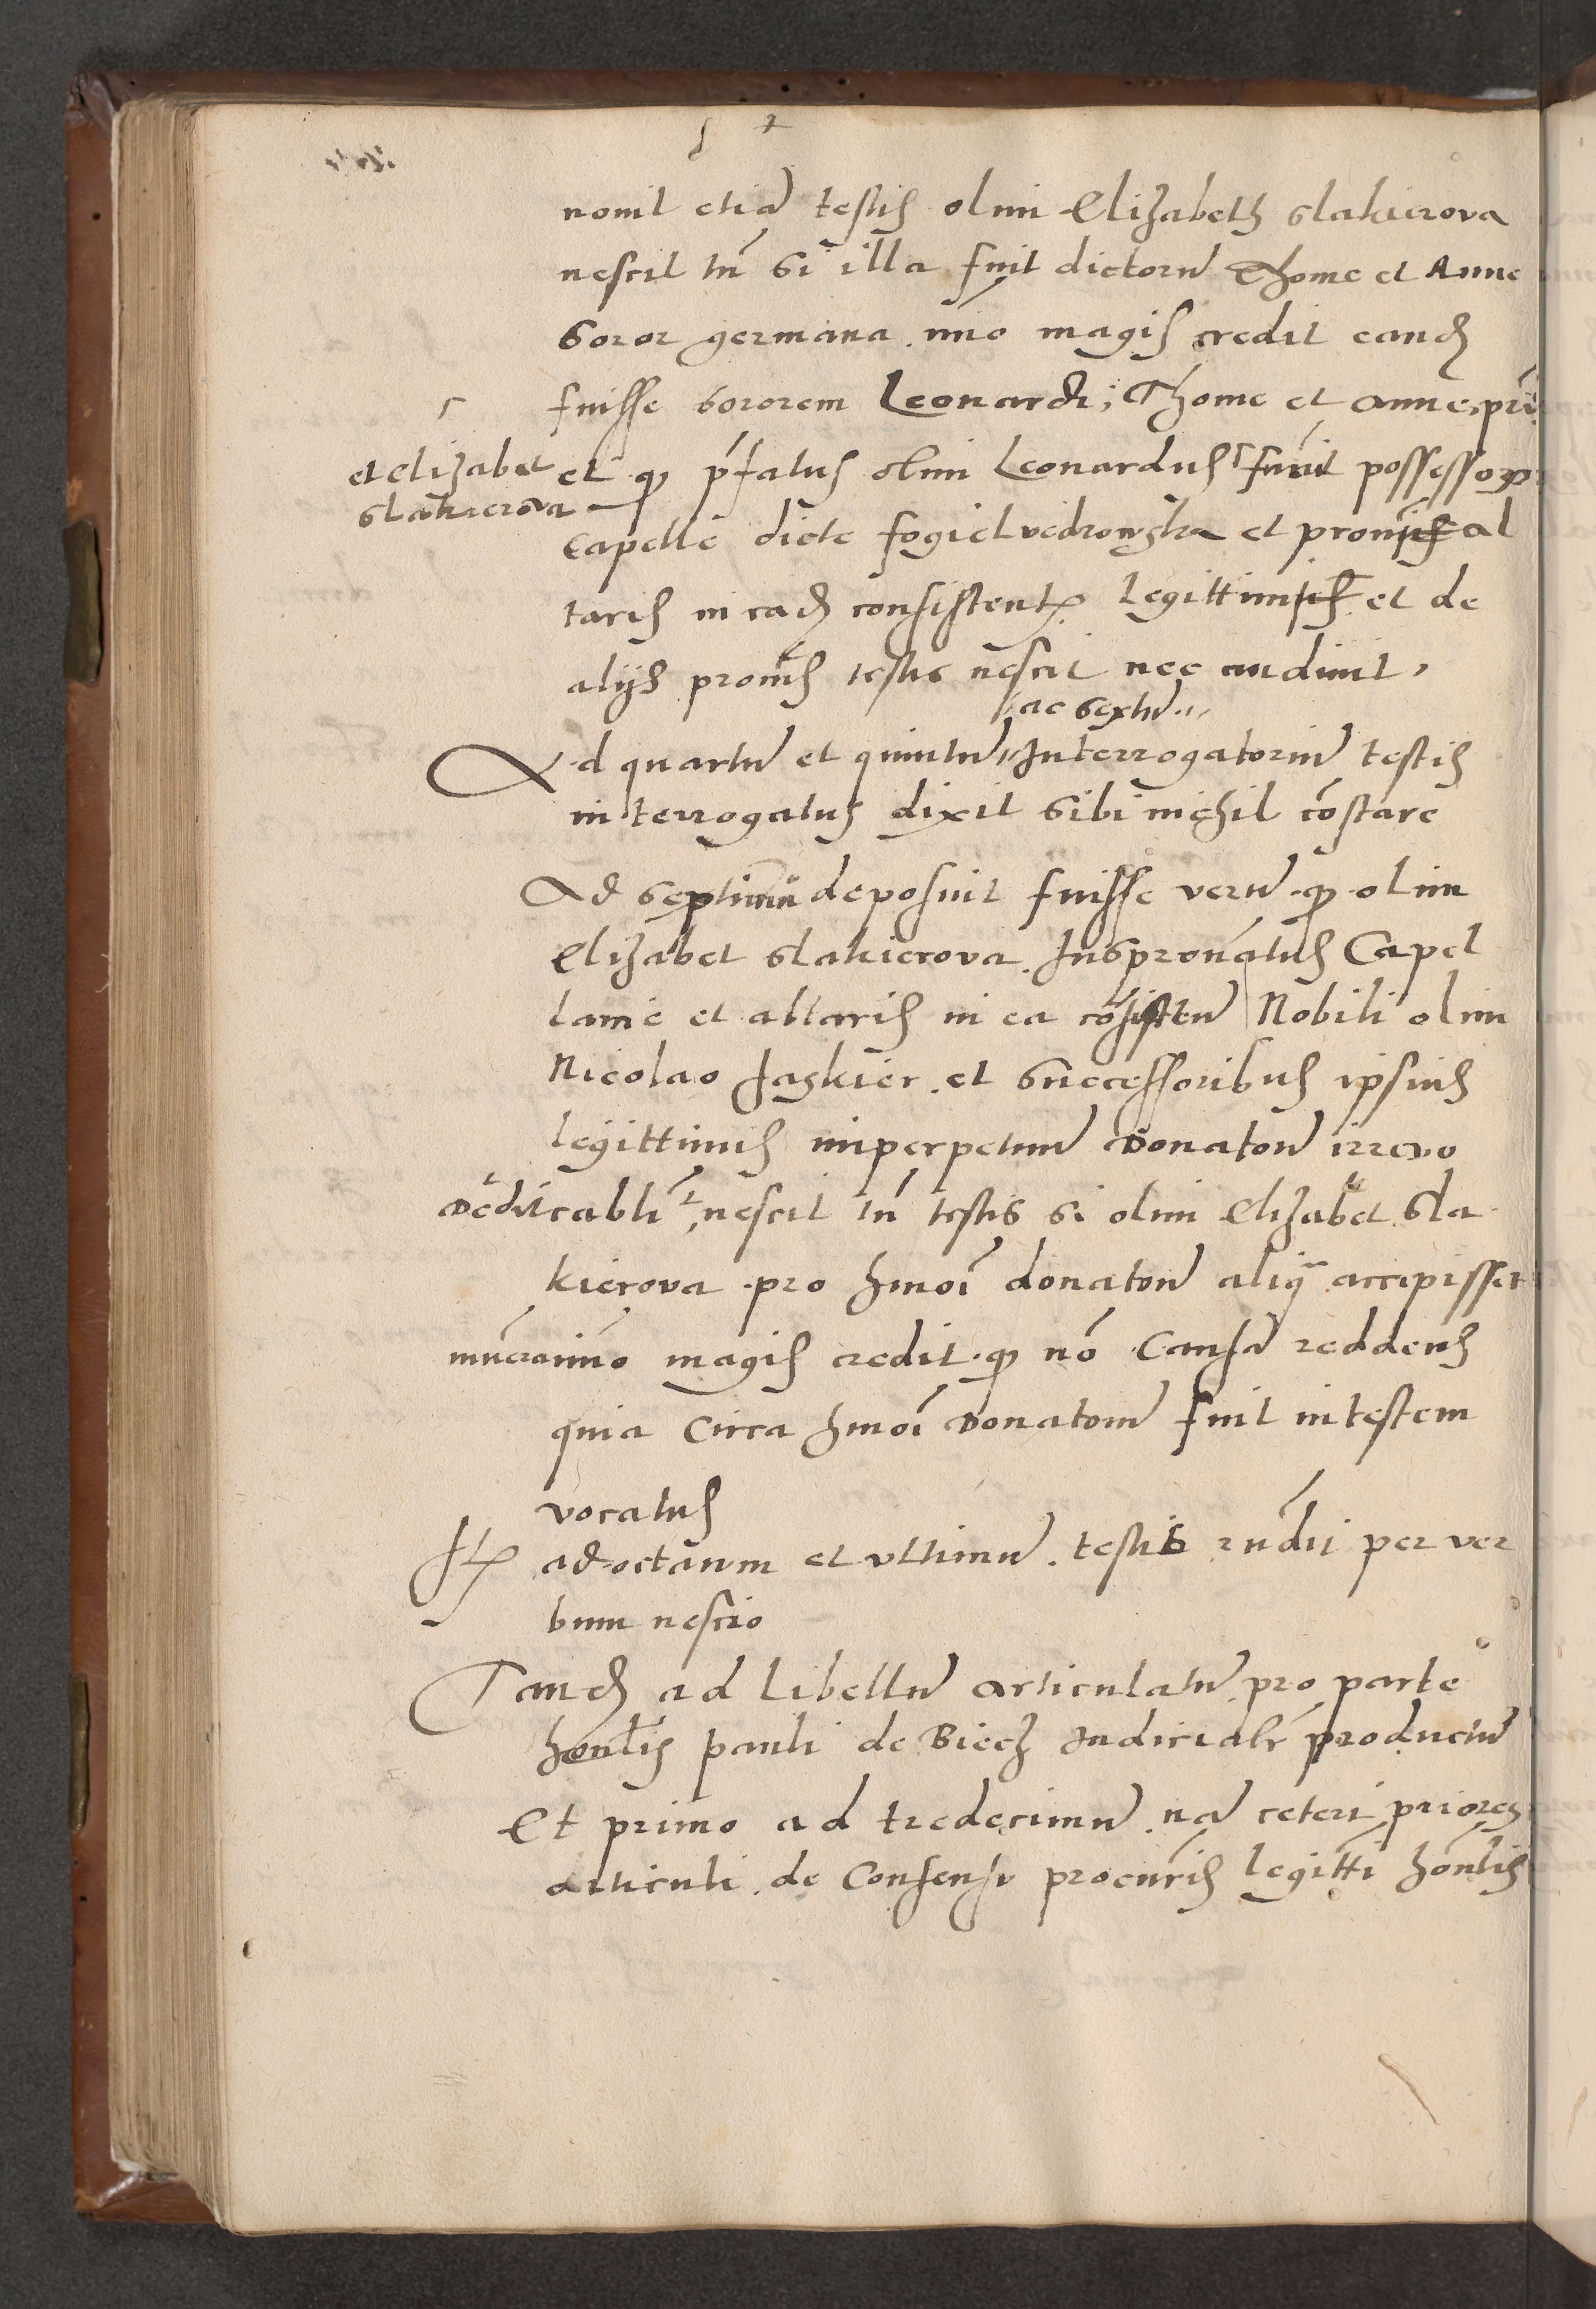 novit etiā testis olim Elizabeth slakierova
nescit tn̄ si illa fuit dictorū Thome et Anne
soror germana . ım̄o magis credit eand
fuisse sororem Leonardi ; Thome et Anne,
et elizabet
slakierova
et q p̄fatus olim Leonardus fuit possessor
capelle dicte fogielvedrowska et al
taris in ead consistent legittimus et de
alijs testis nescit nec audivit,
ac sextū
Ad quartū et quintū Interrogatoriū testis
interrogatus dixit sibi nichil cōstare
Ad septimū deposuit fuisse verū q olim
Elizabet slakierova . Juspronatus Capel
lanie et altaris in ea cōsisten Nobili olim
Nicolao Jaskier . et successoribus ipsius
legittimis imperpetuū donatonē irrevo
cabli nescit tn̄ testis si olim Elizabet sla
kierova . pro hmoi donatonē aliq accepisset
ım̄o magis credit . q nō Causā reddens
quia Circa hmoi Donatonē fuit in testem
vocatus
It ad octavum et vltimū . testis rndit per ver
bum nescio
Tand ad libellū articulatū pro parte
honlis pauli de Biecz Judicialr productū
Et primo ad tredecimū . nā ceteri priores
articuli . de Consensu procuris legitti honlis